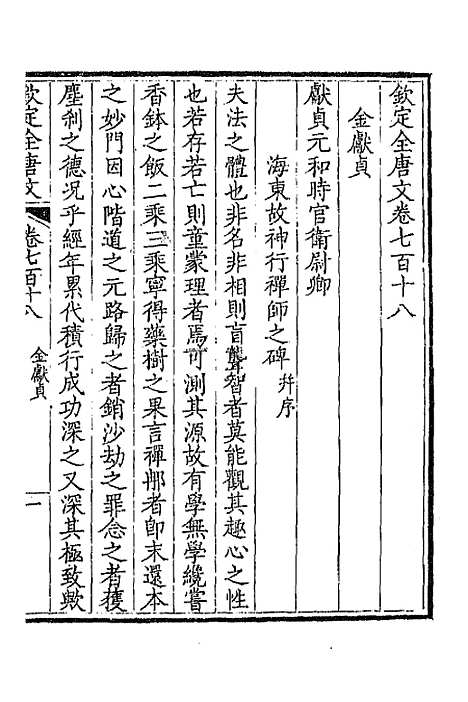 欽定全唐文卷七百十八
金獻貞
獻貞元和時官衛尉卿
海東故神行禪師之碑并序
夫法之體也非名非相則盲聾智者莫能觀其趣心之性
也若存若亡則童蒙理者焉可測其源故有學無學纔嘗
香鉢之飯二乘三乘寧得藥樹之果言禪那者卽末還本
之妙門因心階道之元路歸之者銷沙劫之罪念之者獲
塵刹之德况乎經年累代積行成功深之又深其極致歟
欽定全唐文 卷七百十八 金獻貞 一